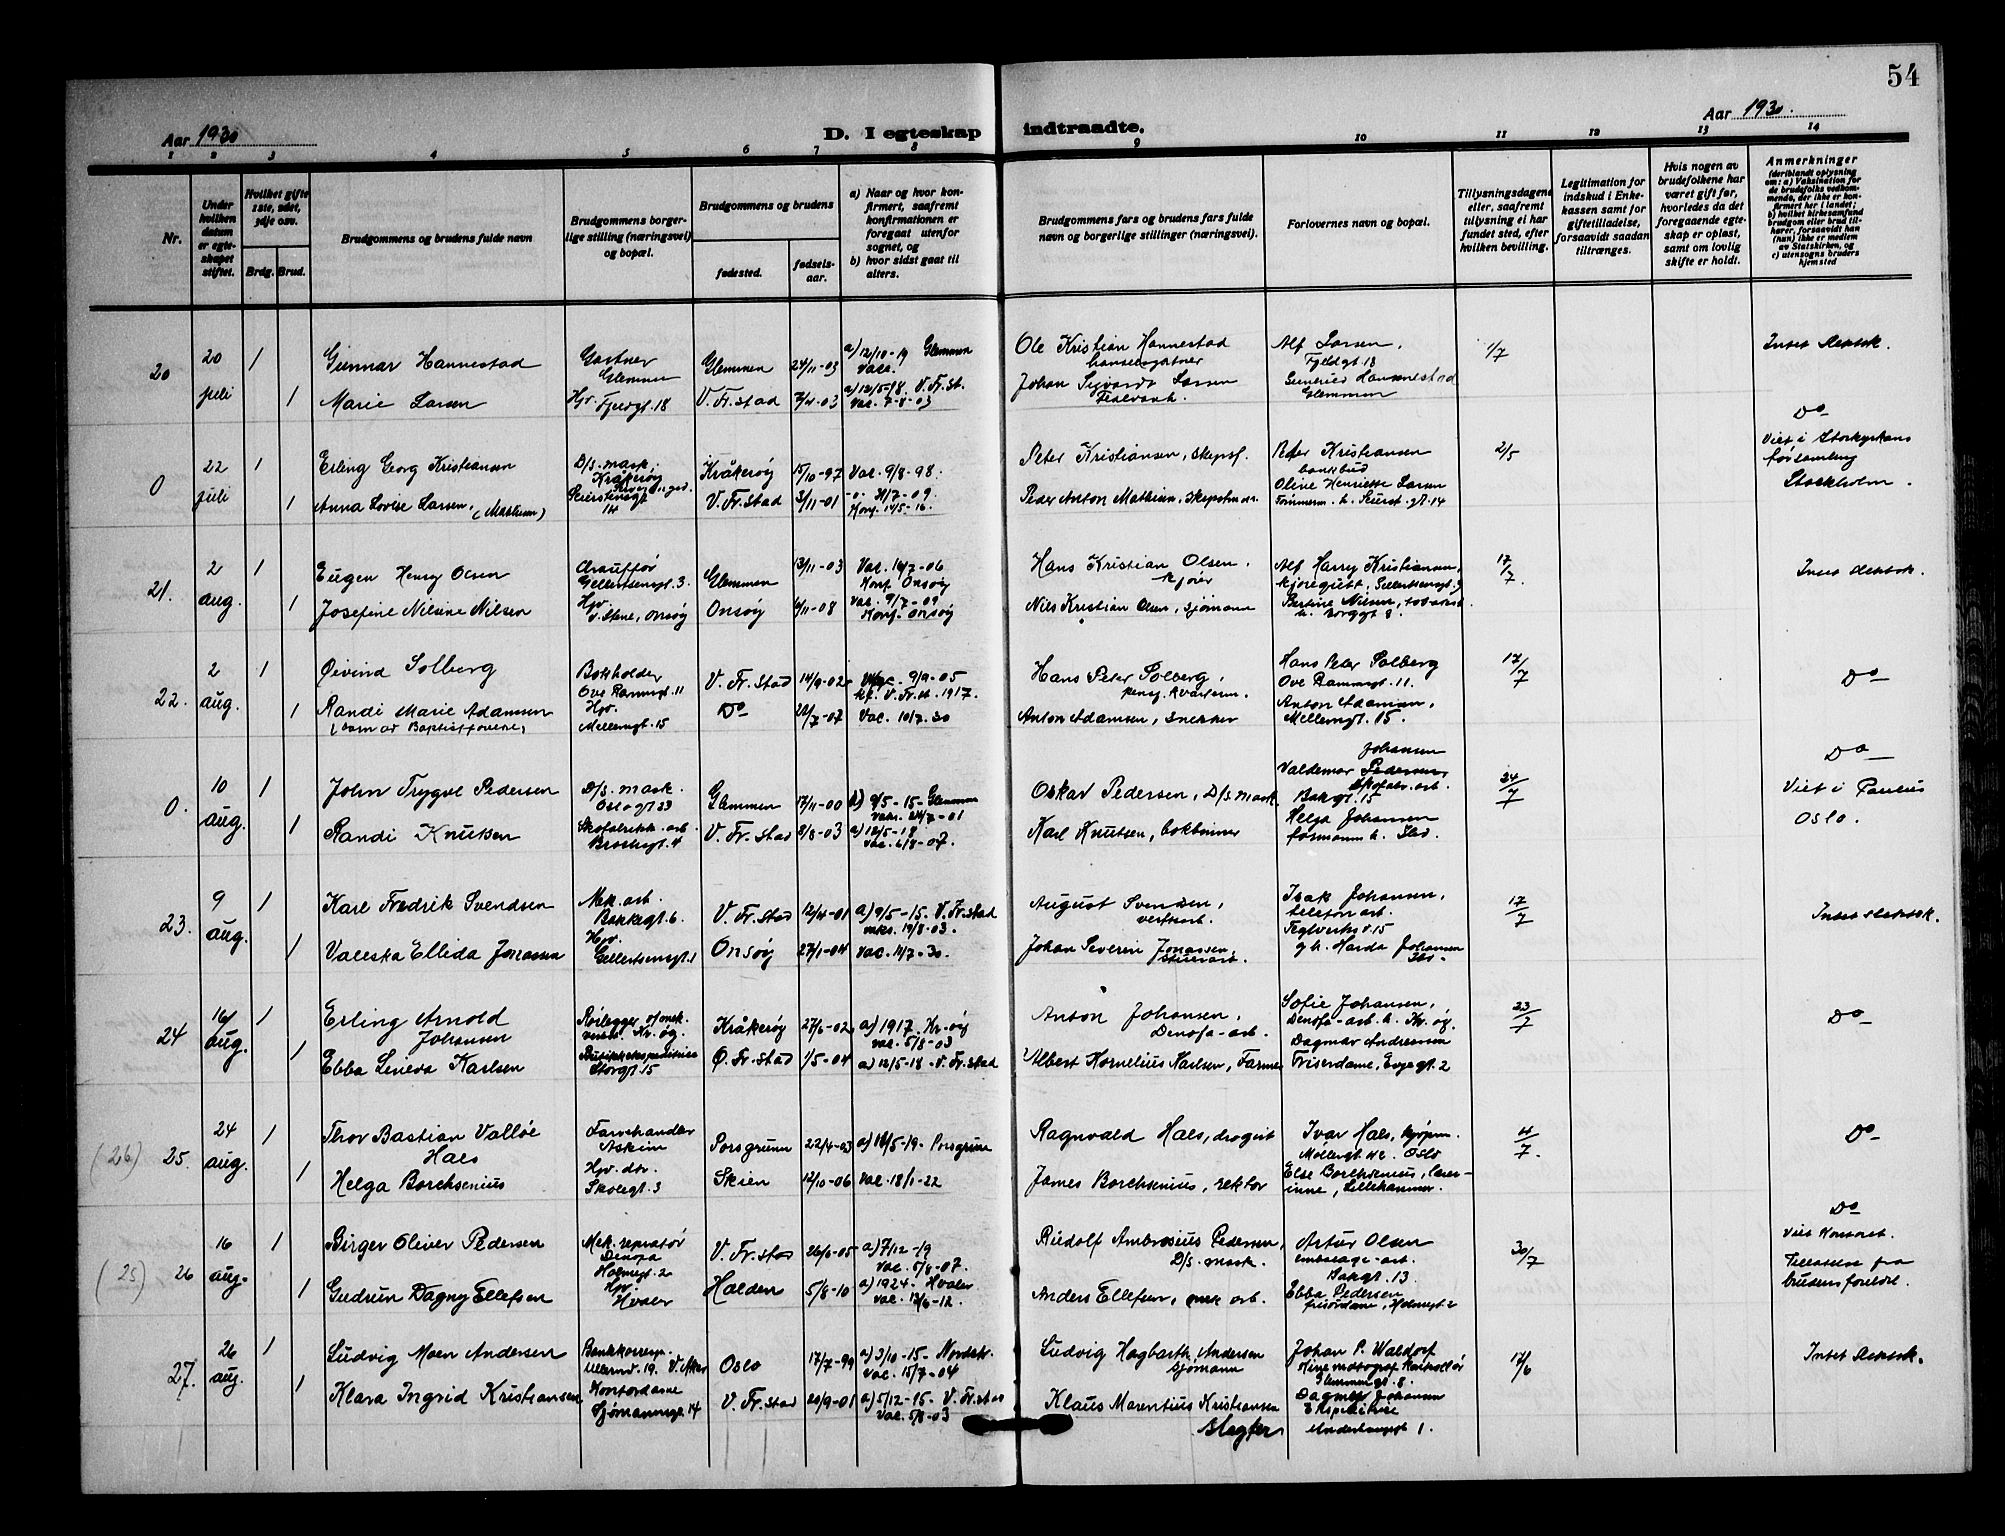 54
Aar 1930
D. I egteskap indtraadte.
Aar 1930.
1 2 3 4 5 6 7 8 9 10 11 12 13 14
Nr.
Under hvilken datum er egteskapet stiftet.
Hvilket gifte 1ste, 2det, 3dje osv.
Brdg. Brud.
Brudgommens og brudens fulde navn
Brudgommens borgerlige stilling (næringsvei) og bopæl.
Brudgommens og brudens
fødested.
fødselsaar.
a) Naar og hvor konfirmert, saafremt konfirmationen er foregaat utenfor sognet, og
b) hvor sidst gaat til alters.
Brudgommens fars og brudens fars fulde navn og borgerlige stillinger (næringsvei).
Forlovernes navn og bopæl.
Tillysningsdagene eller, saafremt tillysning ei har fundet sted, efter hvilken bevilling.
Legitimation for indskud i Enkekassen samt for giftetilladelse, forsaavidt saadan tiltrænges.
Hvis nogen av brudefolkene har været gift før, hvorledes da det foregaaende egteskap er opløst, samt om lovlig skifte er holdt.
Anmerkninger
(deriblandt oplysning om: a) Vaksination for de brudefolks vedkommende, der ikke er konfirmert her i landet; b) hvilket kirkesamfund brudgom eller brud tilhører, forsaavidt han (hun) ikke er medlem av Statskirken, og c) utensogns bruders hjemsted
20
20 juli
1
Gunnar Hannestad
Gartner
Glemmen
Glemmen
24/11-03
a) 12/10-19 Glemmen
Vacc.
Ole Kristian Hannestad
Alf Larsen,
Fjeldgt. 18
1/7
1
Marie Larsen
Hjv. Fjeldgt. 18
V. Fr. stad
2/4-03
a) 12/5-18. V. Fr. st.
Vac. 7-8-03
Johan Sigvardt Larsen
Gunerius Hannestad
Glemmen
0
22 juli
1
Erling Georg Kristiansen
D/s. mask,
Kråkerøy
Kråkerøy
15/10-97
Vac. 9/8-98.
Peter Kristiansen, skipsf.
Peter Kristiansen
bankbud
2/5
Do
Viet i Storkyrkans
församling
Stockholm.
1
Anna Lovise Larsen, (Mathisen)
14
V. Fr. stad
3/11-01
-o- 31/7-09.
Konf. 14/5-16.
Peder Anton Mathisen, skipstm.
Oline Henriette Larsen
21.
2 aug.
1
Eugen Henry Olsen
Chauffør
Gellertsensgt. 3.
Glemmen
13/11-03
Vac. 14/7-06
Konf. Onsøy
Hans Kristian Olsen,
kjører
Alf Harry Kristiansen,
kjøregutt, Gellertsensgt. 3
17/7.
1
Josefine Nilsine Nilsen
Hjv.
V. Stene, Onsøy
Onsøy
4/11-08
Vac. 9/7-09
Konf. Onsøy
Nils Kristian Olsen, sjømann
Bertine Nilsen,
Borggt 8.
22.
2 aug.
1
Øivind Solberg
Bokholder
Ove Ramms gt. 11
V. Fr. stad
14/9-02
9/9-05
kf. V. Fr. st. 1917.
Hans Peter Solberg,
Hans Peter Solberg
Ove Rammsgt. 11.
17/7
Do
1
Randi Marie Adamsen
Hjv.
Mellemgt. 15
Do
22/7-07
Vac. 10/7.30
Anton Adamsen, snekker
Anton Adamsen,
Mellemgt. 15.
0.
10 aug.
1
John Trygve Pedersen
D/s. mask.
Oslogt 33
Glemmen
17/11-00
b) 9/5-15- Glemmen
Vakc. 24/7-01
Oskar Pedersen, D/s mask.
Johansen
Valdemar Pedersen,
skofabr. arb.
Bakgt. 15
24/7
Do
Viet i Paulus
Oslo.
1
Randi Knutsen
Skofabrikk-arb.
V. Fr. stad
8/8-03
a) 12/5-18
Vac. 6/8-07.
Karl Knutsen, bokbinner
Helga Johansen
23.
9 aug.
1
Karl Fredrik Svendsen
Mek. arb.
Bakkegt. 6.
V. Fr. stad
12/4-01
a) 9/5-15. V. Fr. stad
vaks. 19/8-03.
August Svendsen,
verftsarb.
Isak Johansen,
telefon arb.
Teglverks v. 15
17/7
1
Valeska Ellida Jonassen
Hjv.
Gellertsensgt. 1
Onsøy
27/1-04
Vac. 11/7-30.
Johan Severin Jonassen,
gh. Harda Johansen
24
16/ aug.
1
Erling Arnold
Johansen
Rørlegger
Kr. øg.
Kråkerøy
27/6-02
a) 1917. Kr. øy
Vac. 5/8-03
Anton Johansen,
Denofa-arb.
Sofie Johansen,
Denofa-arb. h. Kr. øg.
23/7
Do
1
Ebba Lineva Karlsen
Storgt. 15
Ø. Fr. stad
1/5-04
a) 12/5-18-V. Fr. stad
Albert Kornelius Karlsen, Farmer
Dagmar Andreassen
Friserdame, Evjegt. 2
(26) 25.
24 aug.
1
Thor Bastian Valløe
Hals
Farvehandler
Askim
Porsgrunn
22/4-03
a) 18/5-19- Porsgrunn
Ragnvald Hals, drogist
Ivar Hals, kjøpm.
Møllergt. 42. Oslo
4/7.
Do
1
Helga Borchsenius
Hjv. dtr.
Skolegt. 3
Skien
12/10-06
Vac. 18/1-22
James Borchsenius, rektor
Else Borchsenius, lærer-
inne, Lillehammer.
(25) 26
16 aug.
1
Birger Oliver Pedersen
Mek. repratør
Denofa
Holmegt. 2
V. Fr. stad
26/6-05
a) 7/12-19
Vac. 5/8-07.
Rudolf Ambrosius Pedersen,
D/s. mask.
Artur Olsen
emballage-arb.
Bakgt. 13.
30/7
Do
Viet Kontoret.
Tillatelse fra
brudens foreldr.
1
Gudrun Dagny Ellefsen
Hjv.
Hvaler
Halden
5/8-10
a) 1924- Hvaler
Vac. 12/6-12.
Anders Ellefsen, mek arb.
Ebba Pedersen
frisørdame, Holmegt. 2
27.
26 aug.
1
Ludvig Moen Andersen
Bankkorresp.
Ullernv. 19. V. Aker
Oslo
17/7-99
a) 3/10-15- Nordstr.
Vac. 15/7-04
Ludvig Hagbarth Andersen
Sjømann
Johan P. Waldorf
Kinematograf kontrollør
Glemmen gt. 8.
17/6
1
Klara Ingrid Kristiansen
Kontordame
Sjømannsgt. 14
V. Fr. stad
20/9-01
a) 5/12-15- V. Fr. stad
Vac. 5/8-03
Klaus Marentius Kristiansen
Slagter
Dagmar Johansen
Ekspeditrise